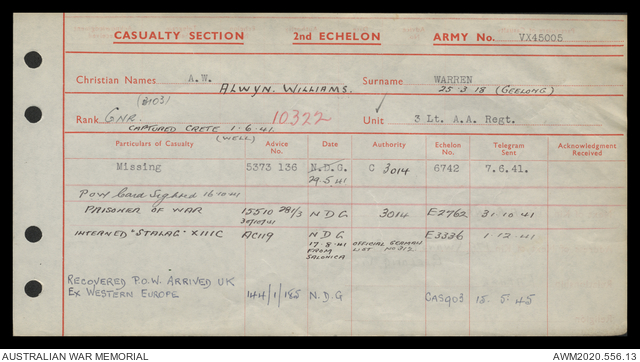 CASUALTY SECTION 2nd ECHELON ARMY No. VX45005
Christian Names A.W. Surname WARREN
ALWYN. WILLIAMS. 25.3.18 (GEELONG)
(3103)
Rank GNR. 10322 Unit 3 Lt. A.A. Regt.
CAPTURED CRETE 1.6.41 (WELL)
Particulars of Casualty Advice No. Date Authority Echelon No. Telegram Sent Acknowledgment Received
Missing 5373 136 N.D.G. C 3014 6742 7.6.41.
29.5.41
POW Card Sighted 16.10.41
PRISONER OF WAR 15510 281/3 N D G 3014 E2762 31.10.41
30/10/41
INTERNED "STALAG" XIIIC AC119 N D G E3336 1.12.41
17.8.41 OFFICIAL GERMAN
FROM LIST NO 312
SALONICA
RECOVERED P.O.W. ARRIVED UK
EX WESTERN EUROPE 144/1/185 N.D.G CAS903 15.5.45
AUSTRALIAN WAR MEMORIAL AWM2020.556.13